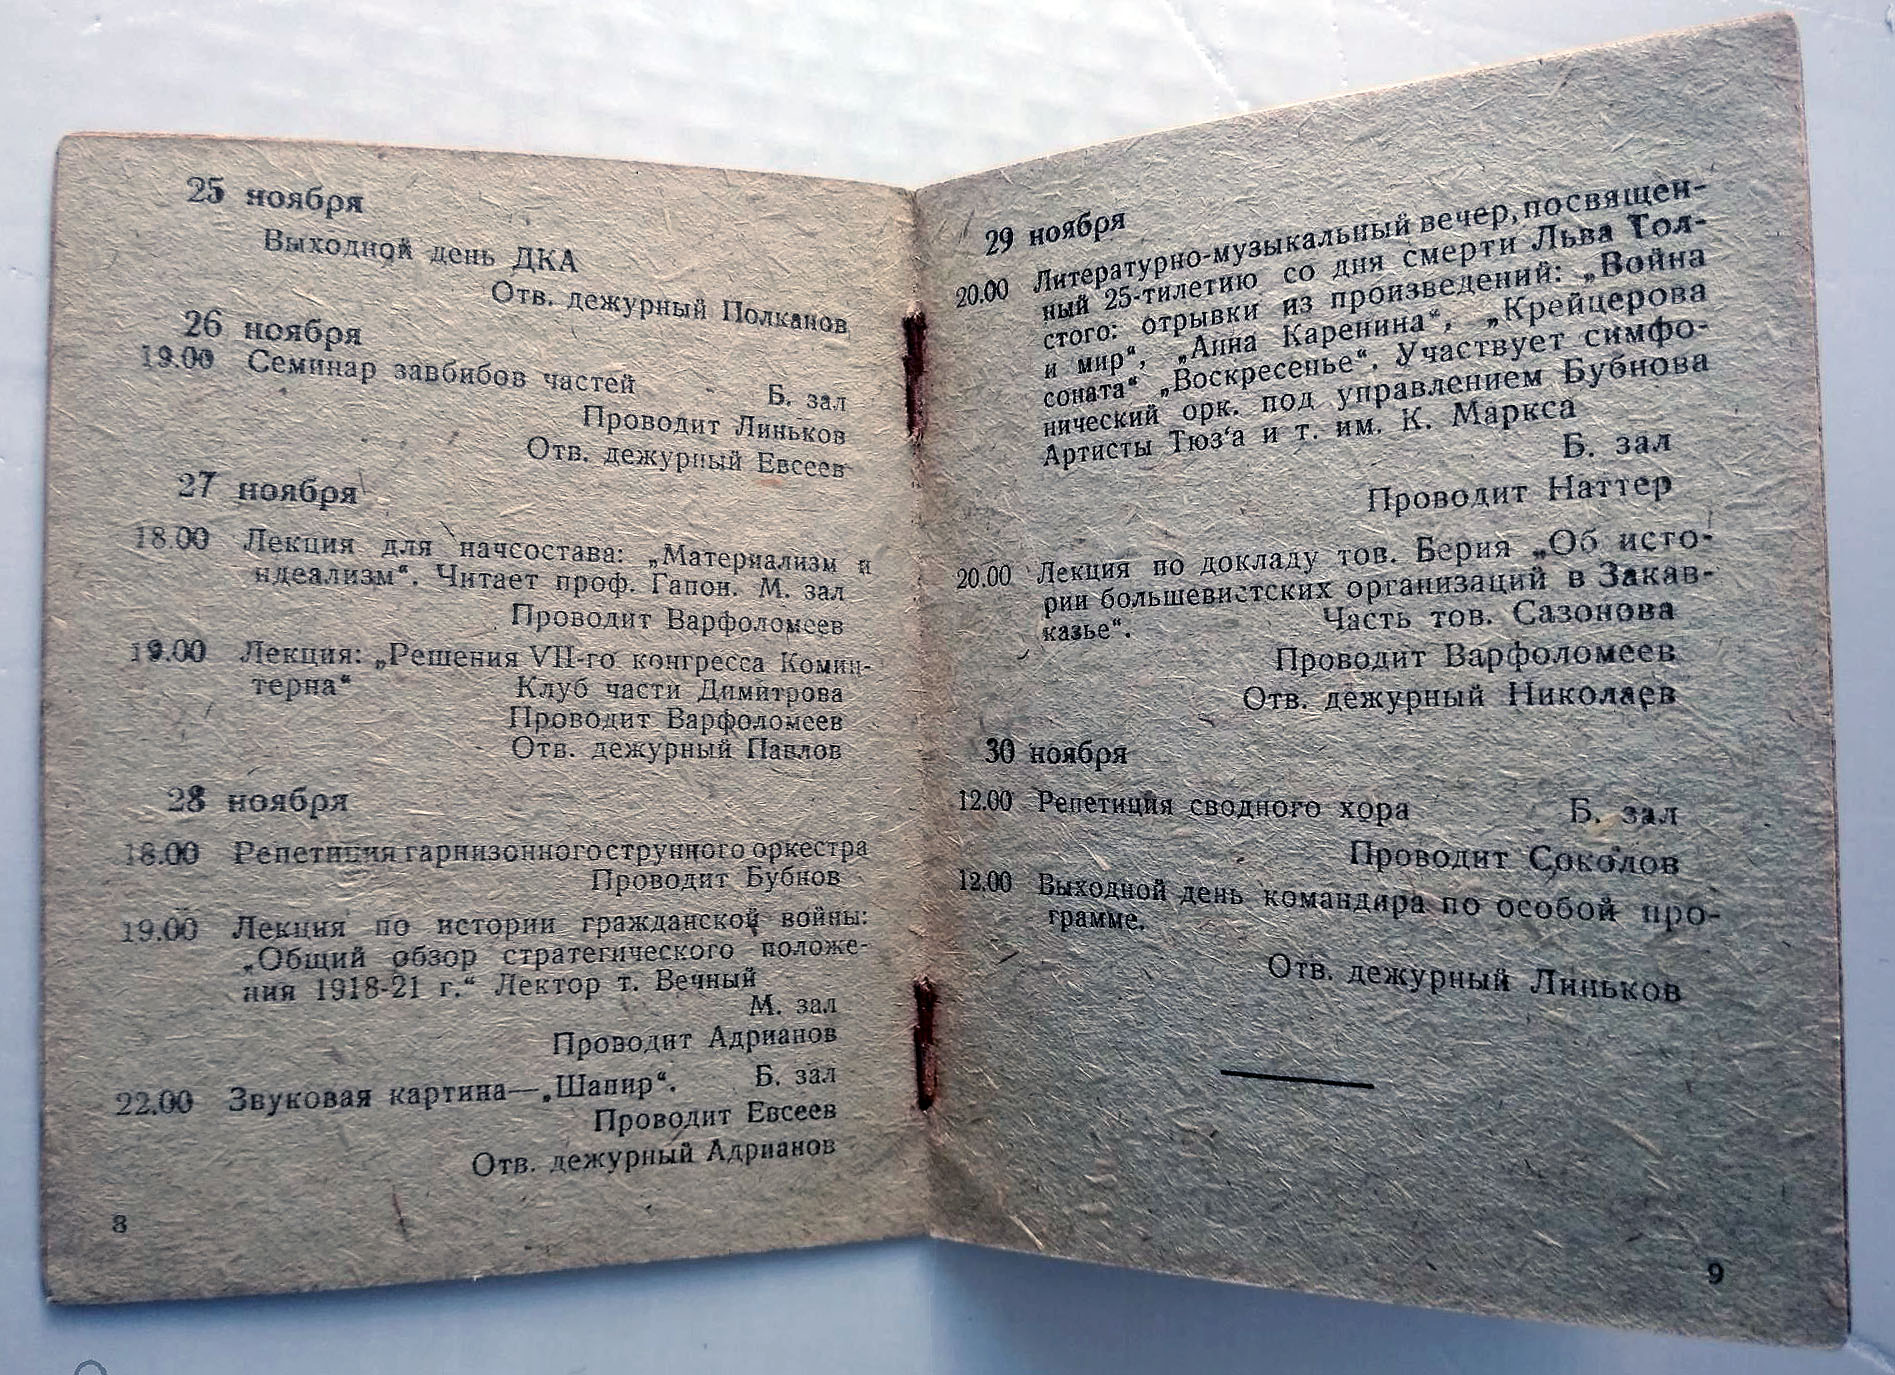 25 ноября
Выходной день ДКА
Отв. дежурный Полканов
26 ноября
19.00 Семинар завбибов частей Б. зал
Проводит Линьков
Отв. дежурный Евсеев
27 ноября
18.00 Лекция для начсостава: „Материализм и
идеализм“. Читает проф. Гапон. М. зал
Проводит Варфоломеев
19.00 Лекция: „Решения VII-го конгресса Комин-
терна“ Клуб части Димитрова
Проводит Варфоломеев
Отв. дежурный Павлов
28 ноября
18.00 Репетиция гарнизонного струнного оркестра
Проводит Бубнов
19.00 Лекция по истории гражданской войны:
„Общий обзор стратегического положе-
ния 1918-21 г.“ Лектор т. Вечный
М. зал
Проводит Адрианов
22.00 Звуковая картина—„Шапир“. Б. зал
Проводит Евсеев
Отв. дежурный Адрианов
8
29 ноября
20.00 Литературно-музыкальный вечер, посвящен-
ный 25-тилетию со дня смерти Льва Тол-
стого: отрывки из произведений: „Война
и мир“, „Анна Каренина“, „Крейцерова
соната“ „Воскресенье“. Участвует симфо-
нический орк. под управлением Бубнова
Артисты Тюз‘а и т. им. К. Маркса
Б. зал
Проводит Наттер
20.00 Лекция по докладу тов. Берия „Об исто-
рии большевистских организаций в Закав-
казье“. Часть тов. Сазонова
Проводит Варфоломеев
Отв. дежурный Николаев
30 ноября
12.00 Репетиция сводного хора Б. зал
Проводит Соколов
12.00 Выходной день командира по особой про-
грамме.
Отв. дежурный Линьков
9